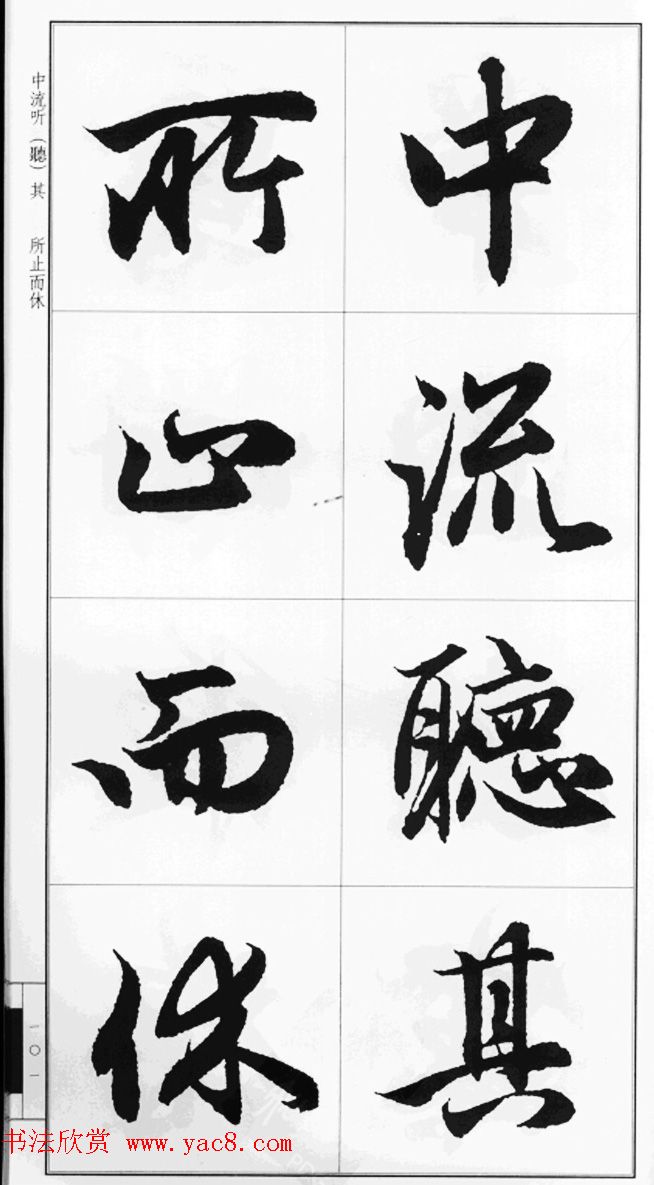 中流聽其
所止而休
中流听（聽）其 所止而休
一〇一
书法欣赏 www.yac8.com